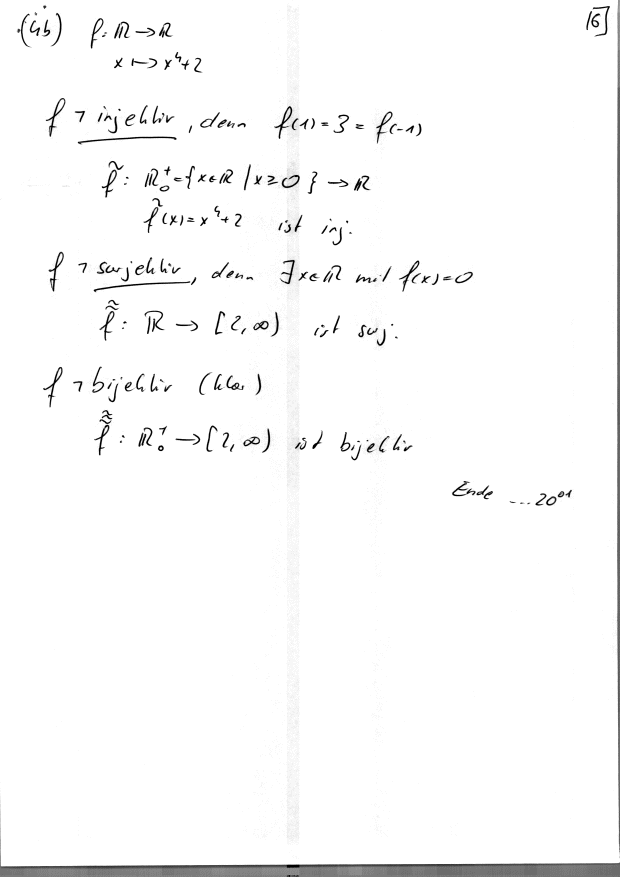 (4b) f: ℝ → ℝ 16
x ↦ x⁴+2
f ¬ injektiv, denn f(1) = 3 = f(-1)
f̃ : ℝ₀⁺ = {x∈ℝ | x≥0} → ℝ
f̃(x) = x⁴+2 ist inj.
f ¬ surjektiv, denn ∃ x∈ℝ mit f(x)=0
f̃̃ : ℝ → [2, ∞) ist surj.
f ¬ bijektiv (klar)
f̃̃̃ : ℝ₀⁺ → [2, ∞) ist bijektiv
Ende ... 20⁰¹